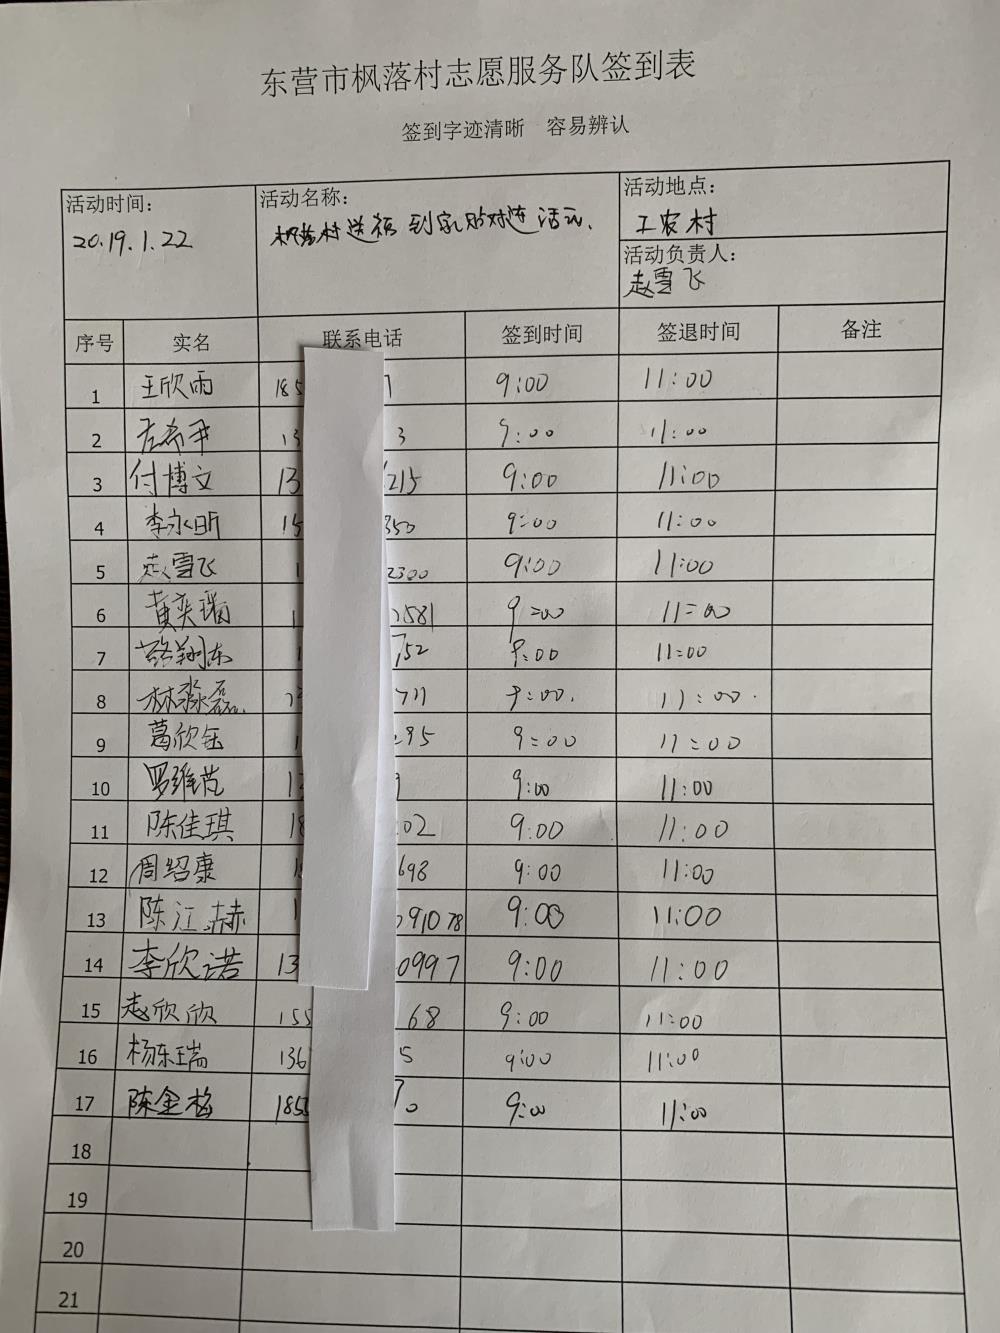 东营市枫落村志愿服务队签到表
签到字迹清晰 容易辨认
活动时间: 活动名称: 活动地点:
2019.1.22 枫落村送福到家贴对连活动. 工农村
活动负责人:
赵雪飞
序号 实名 联系电话 签到时间 签退时间 备注
1 王欣雨 185 9:00 11:00
2 13 3 9:00 11:00
3 付博文 13 215 9:00 11:00
4 李永昕 15 350 9:00 11:00
5 赵雪飞 1 2300 9:00 11:00
6 黄奕瑞 1 1581 9:00 11:00
7 翔东 1 752 9:00 11:00
8 林淼磊 711 9:00. 11:00.
9 葛欣钰 1 295 9:00 11:00
10 罗维范 13 9 9:00 11:00
11 陈佳琪 18 02 9:00 11:00
12 周绍康 698 9:00 11:00
13 陈江赫 1 91078 9:00 11:00
14 李欣诺 13 0997 9:00 11:00
15 赵欣欣 155 68 9:00 11:00
16 杨东瑞 136 5 9:00 11:00
17 陈金梅 185 70 9:00 11:00
18
19
20
21